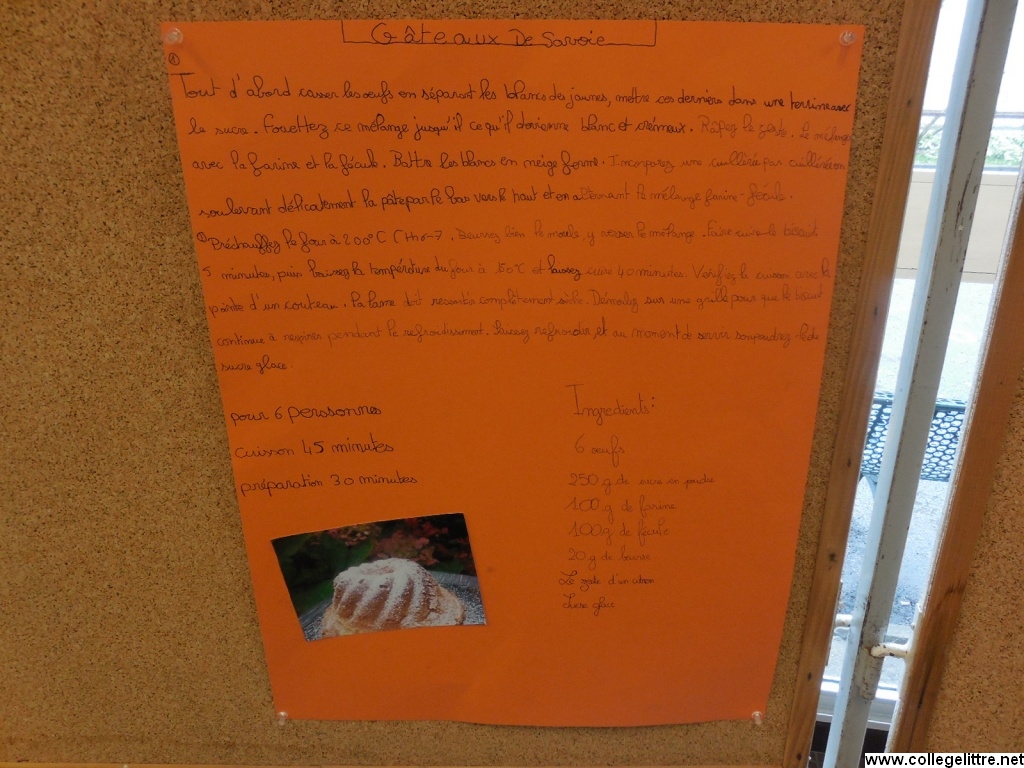 Gâteaux De Savoie
①
Tout d'abord casser les œufs en séparant les blancs des jaunes, mettre ces derniers dans une terrine avec
le sucre. Fouettez ce mélange jusqu'il ce qu'il devienne blanc et crémeux. Râpez le zeste. Le mélange
avec la farine et la fécule. Battre les blancs en neige ferme. Incorporez une cuillérée par cuillérée en
soulevant délicatement la pâte par le bas vers le haut et en alternant le mélange farine-fécule.
Préchauffez le four à 200°C (th 6-7. Beurrez bien le moule, y verser le mélange. Faire cuire le biscuit
5 minutes, puis baissez la température du four à 150°C et laissez cuire 40 minutes. Vérifiez la cuisson avec la
pointe d'un couteau. La lame doit ressortir complètement sèche. Démoulez sur une grille pour que le biscuit
continue à respirer pendant le refroidissement. Laissez refroidir, et au moment de servir saupoudrez-le de
sucre glace.
pour 6 personnes
cuisson 45 minutes
préparation 30 minutes
Ingredients:
6 œufs
250 g de sucre en poudre
100 g de farine
100g de fécule
20 g de beurre
Le zeste d'un citron
Sucre glace
www.collegelittre.net